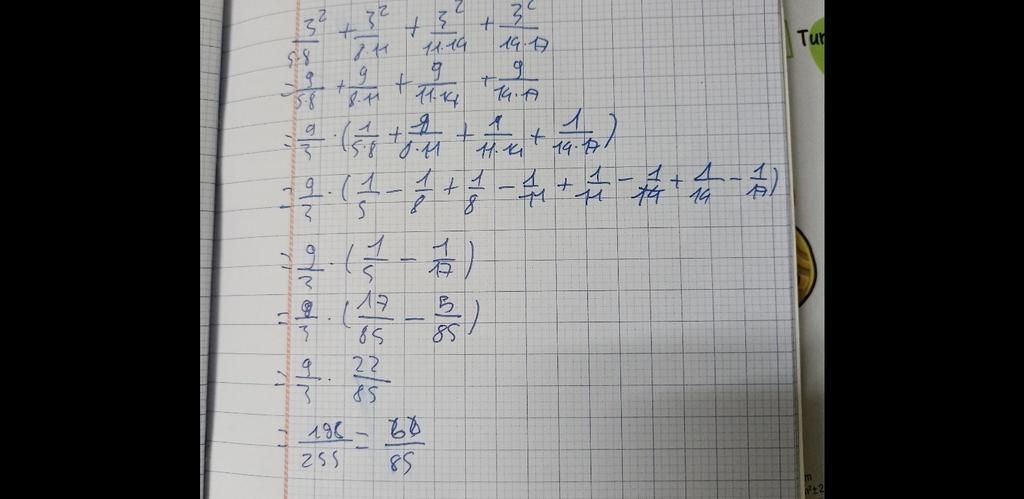 3²/5·8 + 3²/8·11 + 3²/11·14 + 3²/14·17
= 9/5·8 + 9/8·11 + 9/11·14 + 9/14·17
= 9/3 · (1/5·8 + 1/8·11 + 1/11·14 + 1/14·17)
= 9/3 · (1/5 - 1/8 + 1/8 - 1/11 + 1/11 - 1/14 + 1/14 - 1/17)
= 9/3 · (1/5 - 1/17)
= 9/3 · (17/85 - 5/85)
= 9/3 · 22/85
= 198/255 = 66/85
Tur